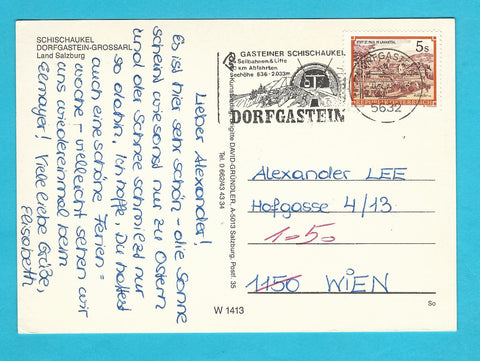 SCHISCHAUKEL
DORFGASTEIN-GROSSARL
Land Salzburg
Lieber Alexander!
Es ist hier sehr schön - die Sonne
scheint wie sonst nur zu Ostern
und der Schnee schmilzt nur
so dahin. Ich hoffe, Du hattest
auch eine schöne Ferien=
woche - vielleicht sehen wir
uns wiedereinmal beim
Elmayer! Viele liebe Grüße,
Elisabeth
Brigitte DAVID-GRÜNDLER, A-5013 Salzburg, Postf. 35
Tel. 0 662/43 43 34
GASTEINER SCHISCHAUKEL
Seilbahnen & Lifte
km Abfahrten
Seehöhe 836 - 2.033m
DORFGASTEIN
5 S
REPUBLIK ÖSTERREICH
DORFGASTEIN
5632
Alexander LEE
Hofgasse 4/13
1050
1150 WIEN
W 1413
So